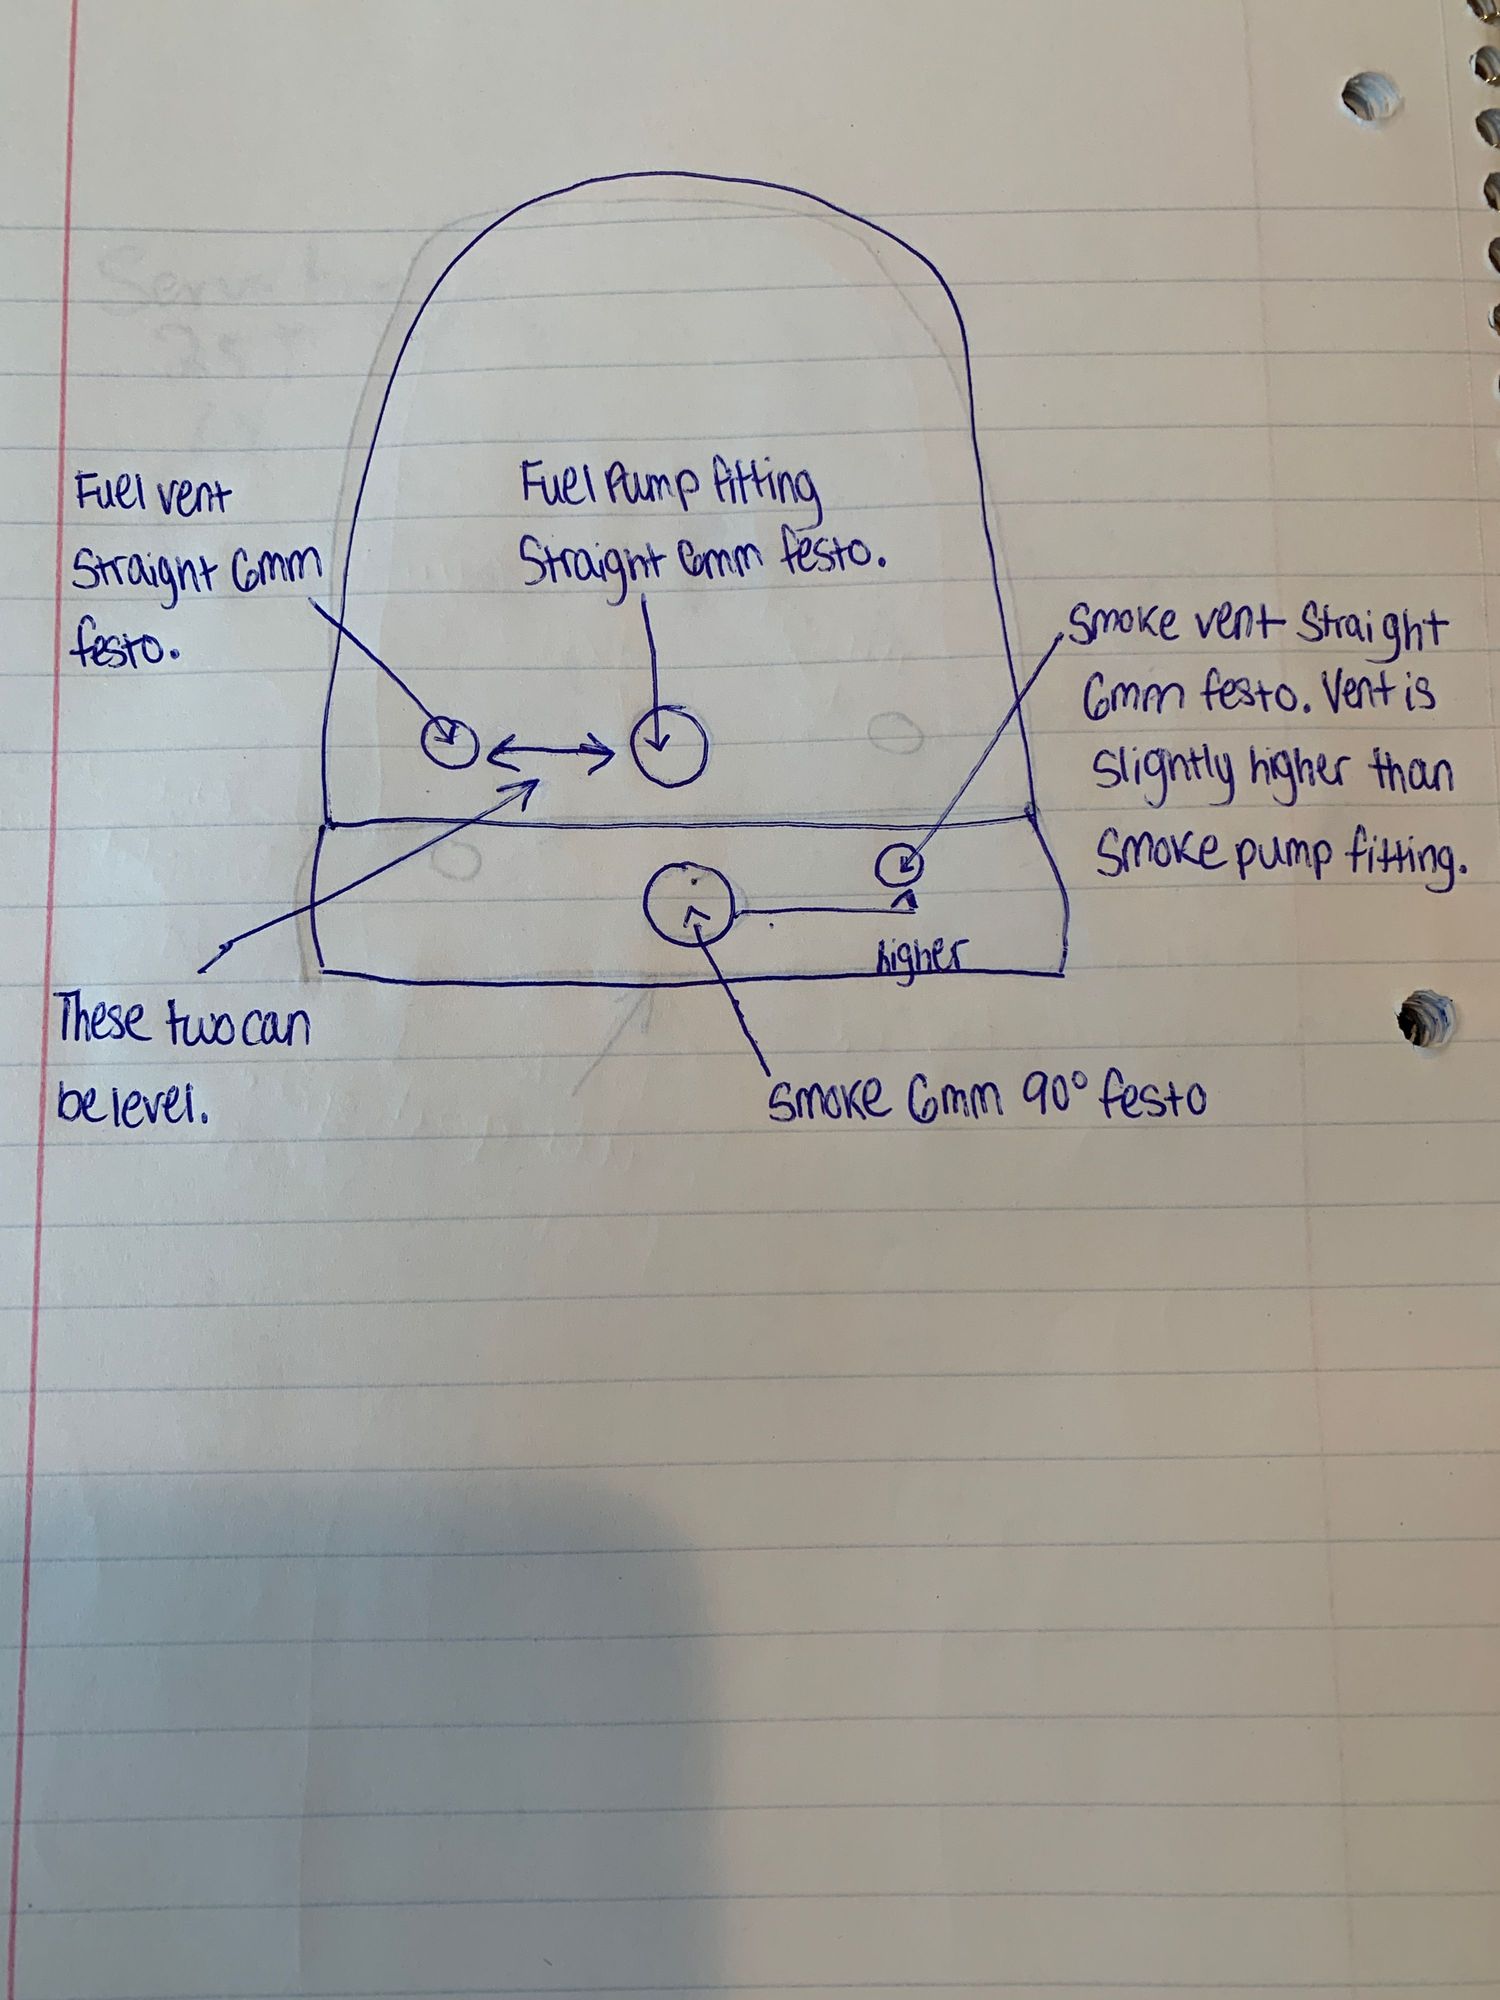 Fuel vent
Straight 6mm
festo.
Fuel Pump fitting
Straight 6mm festo.
Smoke vent Straight
6mm festo. Vent is
Slightly higher than
Smoke pump fitting.
higher
These two can
be level.
Smoke 6mm 90° festo